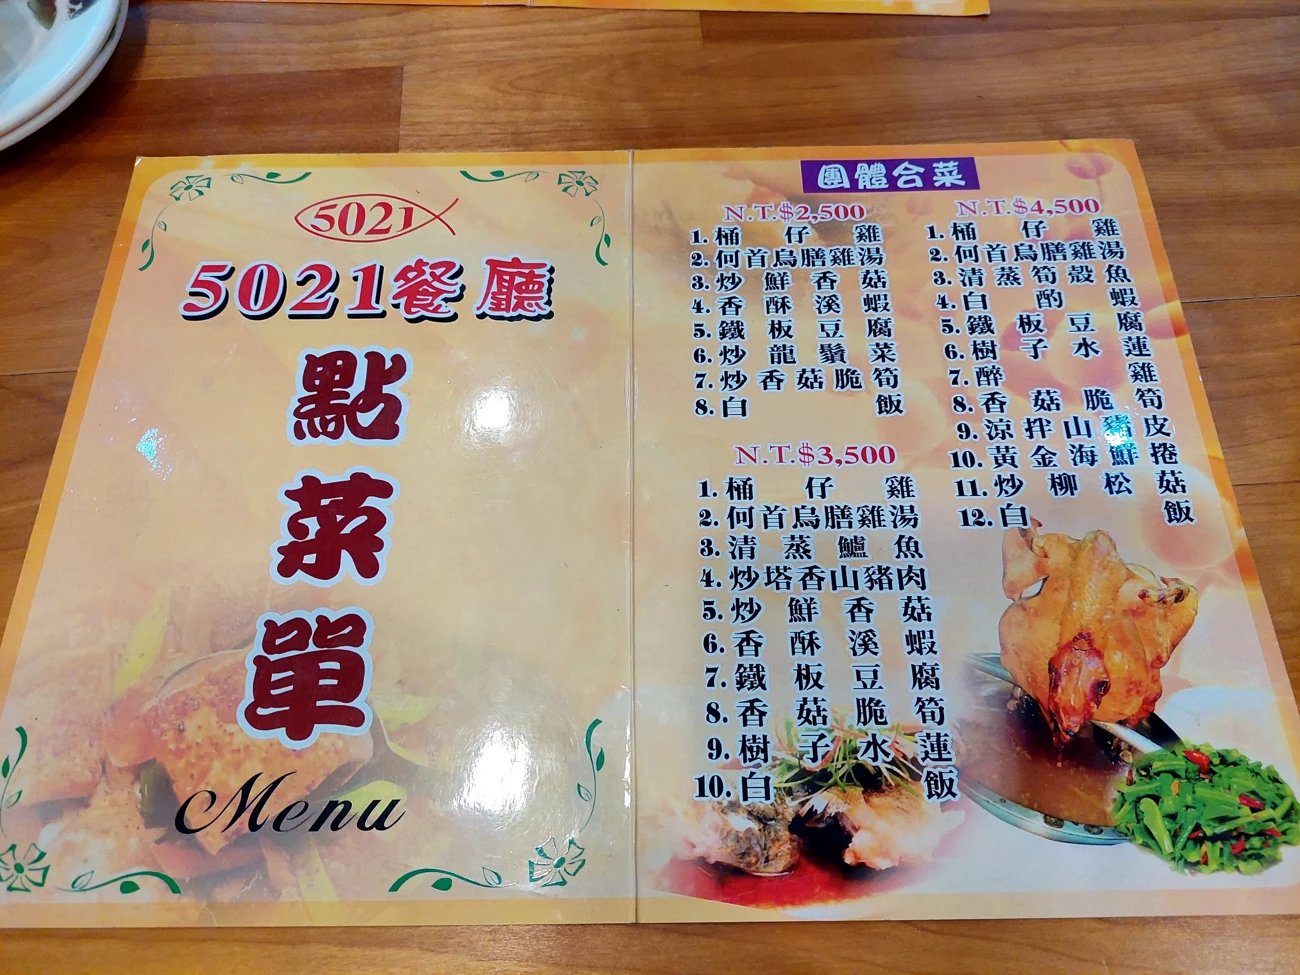 5021
5021餐廳
點菜單
Menu
團體合菜
N.T.$2,500
1.桶仔雞
2.何首烏膳雞湯
3.炒鮮香菇
4.香酥溪蝦
5.鐵板豆腐
6.炒龍鬚菜
7.炒香菇脆筍
8.白飯
N.T.$3,500
1.桶仔雞
2.何首烏膳雞湯
3.清蒸鱸魚
4.炒塔香山豬肉
5.炒鮮香菇
6.香酥溪蝦
7.鐵板豆腐
8.香菇脆筍
9.樹子水蓮
10.白飯
N.T.$4,500
1.桶仔雞
2.何首烏膳雞湯
3.清蒸筍殼魚
4.白酌蝦
5.鐵板豆腐
6.樹子水蓮
7.醉雞
8.香菇脆筍
9.涼拌山豬皮
10.黃金海鮮捲
11.炒柳松菇
12.白飯